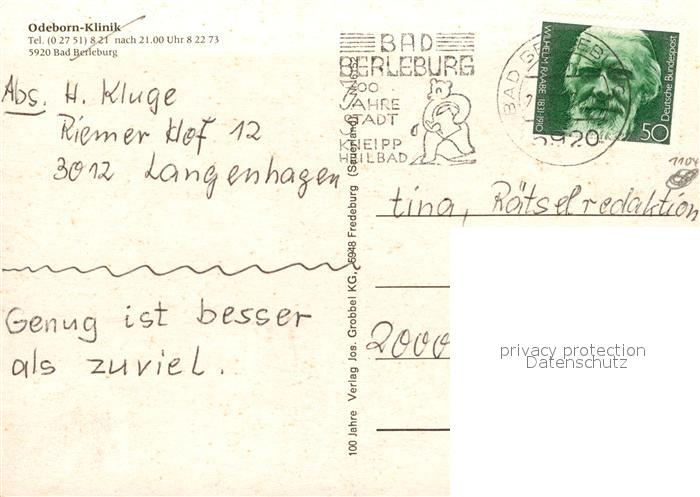 Odeborn-Klinik
Tel. (0 27 51) 8 21 nach 21.00 Uhr 8 22 73
5920 Bad Berleburg
Abs. H. Kluge
Riemer Hof 12
3012 Langenhagen
Genug ist besser
als zuviel.
100 Jahre Verlag Jos. Grobbel KG, 5948 Fredeburg (Sauerland)
BAD
BERLEBURG
700
JAHRE
STADT
KNEIPP
HEILBAD
BAD
5920
WILHELM RAABE 1831-1910
Deutsche Bundespost
50
1104
tina, Rätselredaktion
2000
privacy protection
Datenschutz